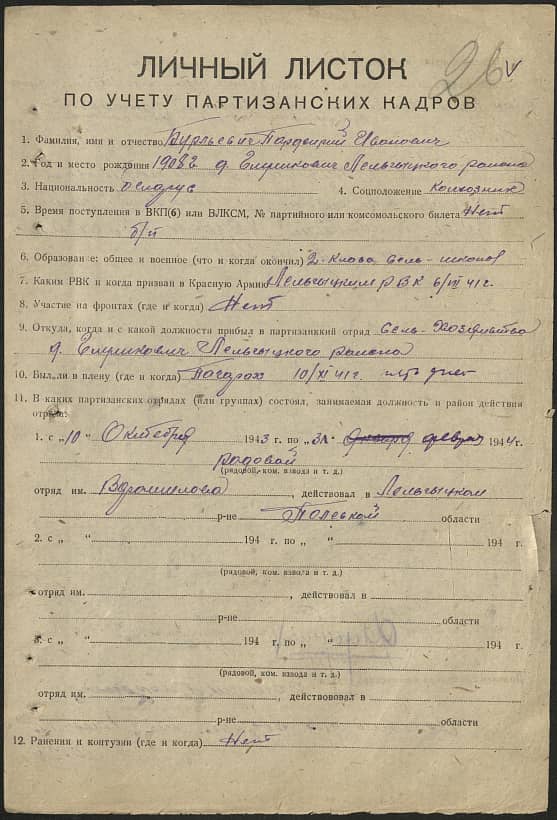 26 v
ЛИЧНЫЙ ЛИСТОК
ПО УЧЕТУ ПАРТИЗАНСКИХ КАДРОВ
1. Фамилия, имя и отчество Бурлевич Иванович
2. Год и место рождения 1908 г. д. Глушкович Лельчицкого района
3. Национальность белорус 4. Соцположение Колхозник
5. Время поступления в ВКП(б) или ВЛКСМ, № партийного или комсомольского билета Нет
б/п
6. Образование: общее и военное (что и когда окончил) 2 класса сель-школы
7. Каким РВК и когда призван в Красную Армию Лельчицким РВК 41 г.
8. Участие на фронтах (где и когда) Нет
9. Откуда, когда и с какой должности прибыл в партизанкий отряд Сель-хозяйства
д. Глушкович Лельчицкого района
10. Был ли в плену (где и когда) 10/XI 41 г.
11. В каких партизанских отрядах (или группах) состоял, занимаемая должность и район действия
отряда:
1. с „10“ Октября 1943 г. по „ январа феврал 1944 г.
рядовой
(рядовой, ком. взвода и т. д.)
отряд им. Ворошилова, действовал в Лельчицком
р-не Полеском области
2. с „ “ 194 г. по „ “ 194 г.
(рядовой, ком. взвода и т. д.)
отряд им. , действовал в
р-не области
3. с „ “ 194 г., по „ “ 194 г.
(рядовой, ком. взвода и т. д.)
отряд им. , действововал в
р-не области
12. Ранения и контузии (где и когда) Нет